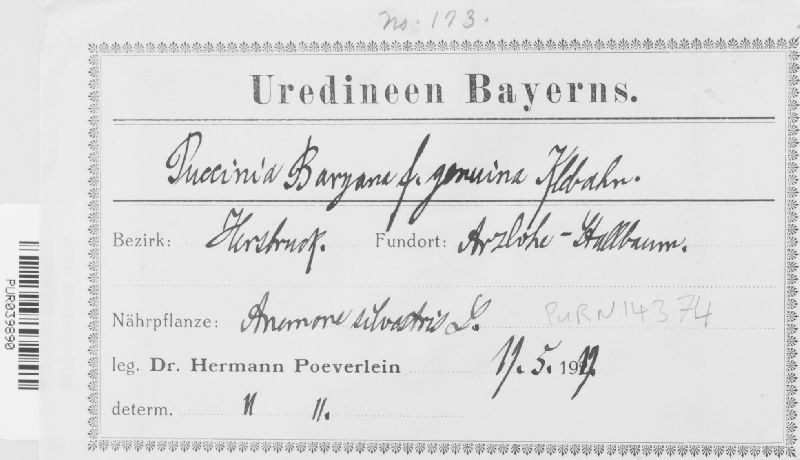 No. 173.
Uredineen Bayerns.
Puccinia Baryana f. genuina Klebahn.
Bezirk: Hersbruck. Fundort: Arzlohe - Stallbaum.
Nährpflanze: Anemone silvestris L.
PUR N14374
leg. Dr. Hermann Poeverlein 5. 19
determ. " ".
PUR039890